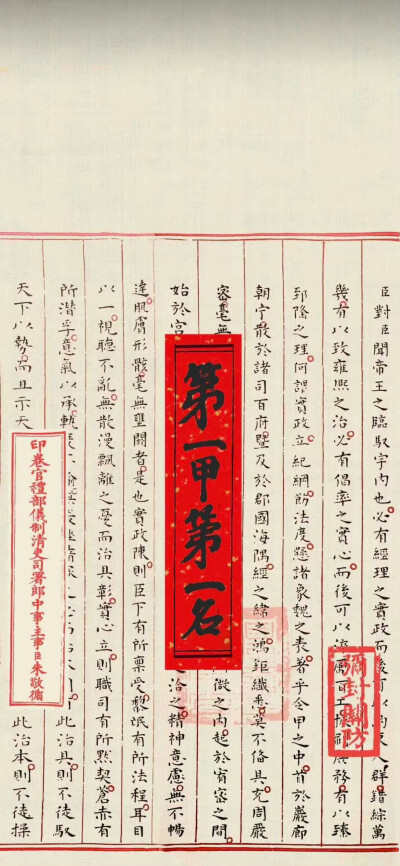 臣對臣聞帝王之臨馭宇內也必有經理之實政而後可以約束人群錯綜萬
幾有以致雍熙之治必有倡率之實心而後可以淬勵百工振刷庶務有以臻
郅隆之理何謂實政立紀綱飭法度懸諸象魏之表著乎令甲之中首於巖廊
朝宁散於諸司百府暨及於郡國海隅經之緯之鴻鉅纖悉莫不備具充周嚴
密毫無
微之內起於宥密之間
始於宮
洽之精神意慮無不暢
達肌膚形骸毫無壅閼者是也實政陳則臣下有所稟受黎氓有所法程耳目
以一視聽不亂無散漫飄離之憂而治具彰實心立則職司有所默契蒼赤有
所潛孚意氣以承軌
此治具則不徒馭
天下以勢而且示天
此治本則不徒操
第一甲第一名
彌封關防
印卷官禮部儀制清吏司署郎中事主事臣朱敬循